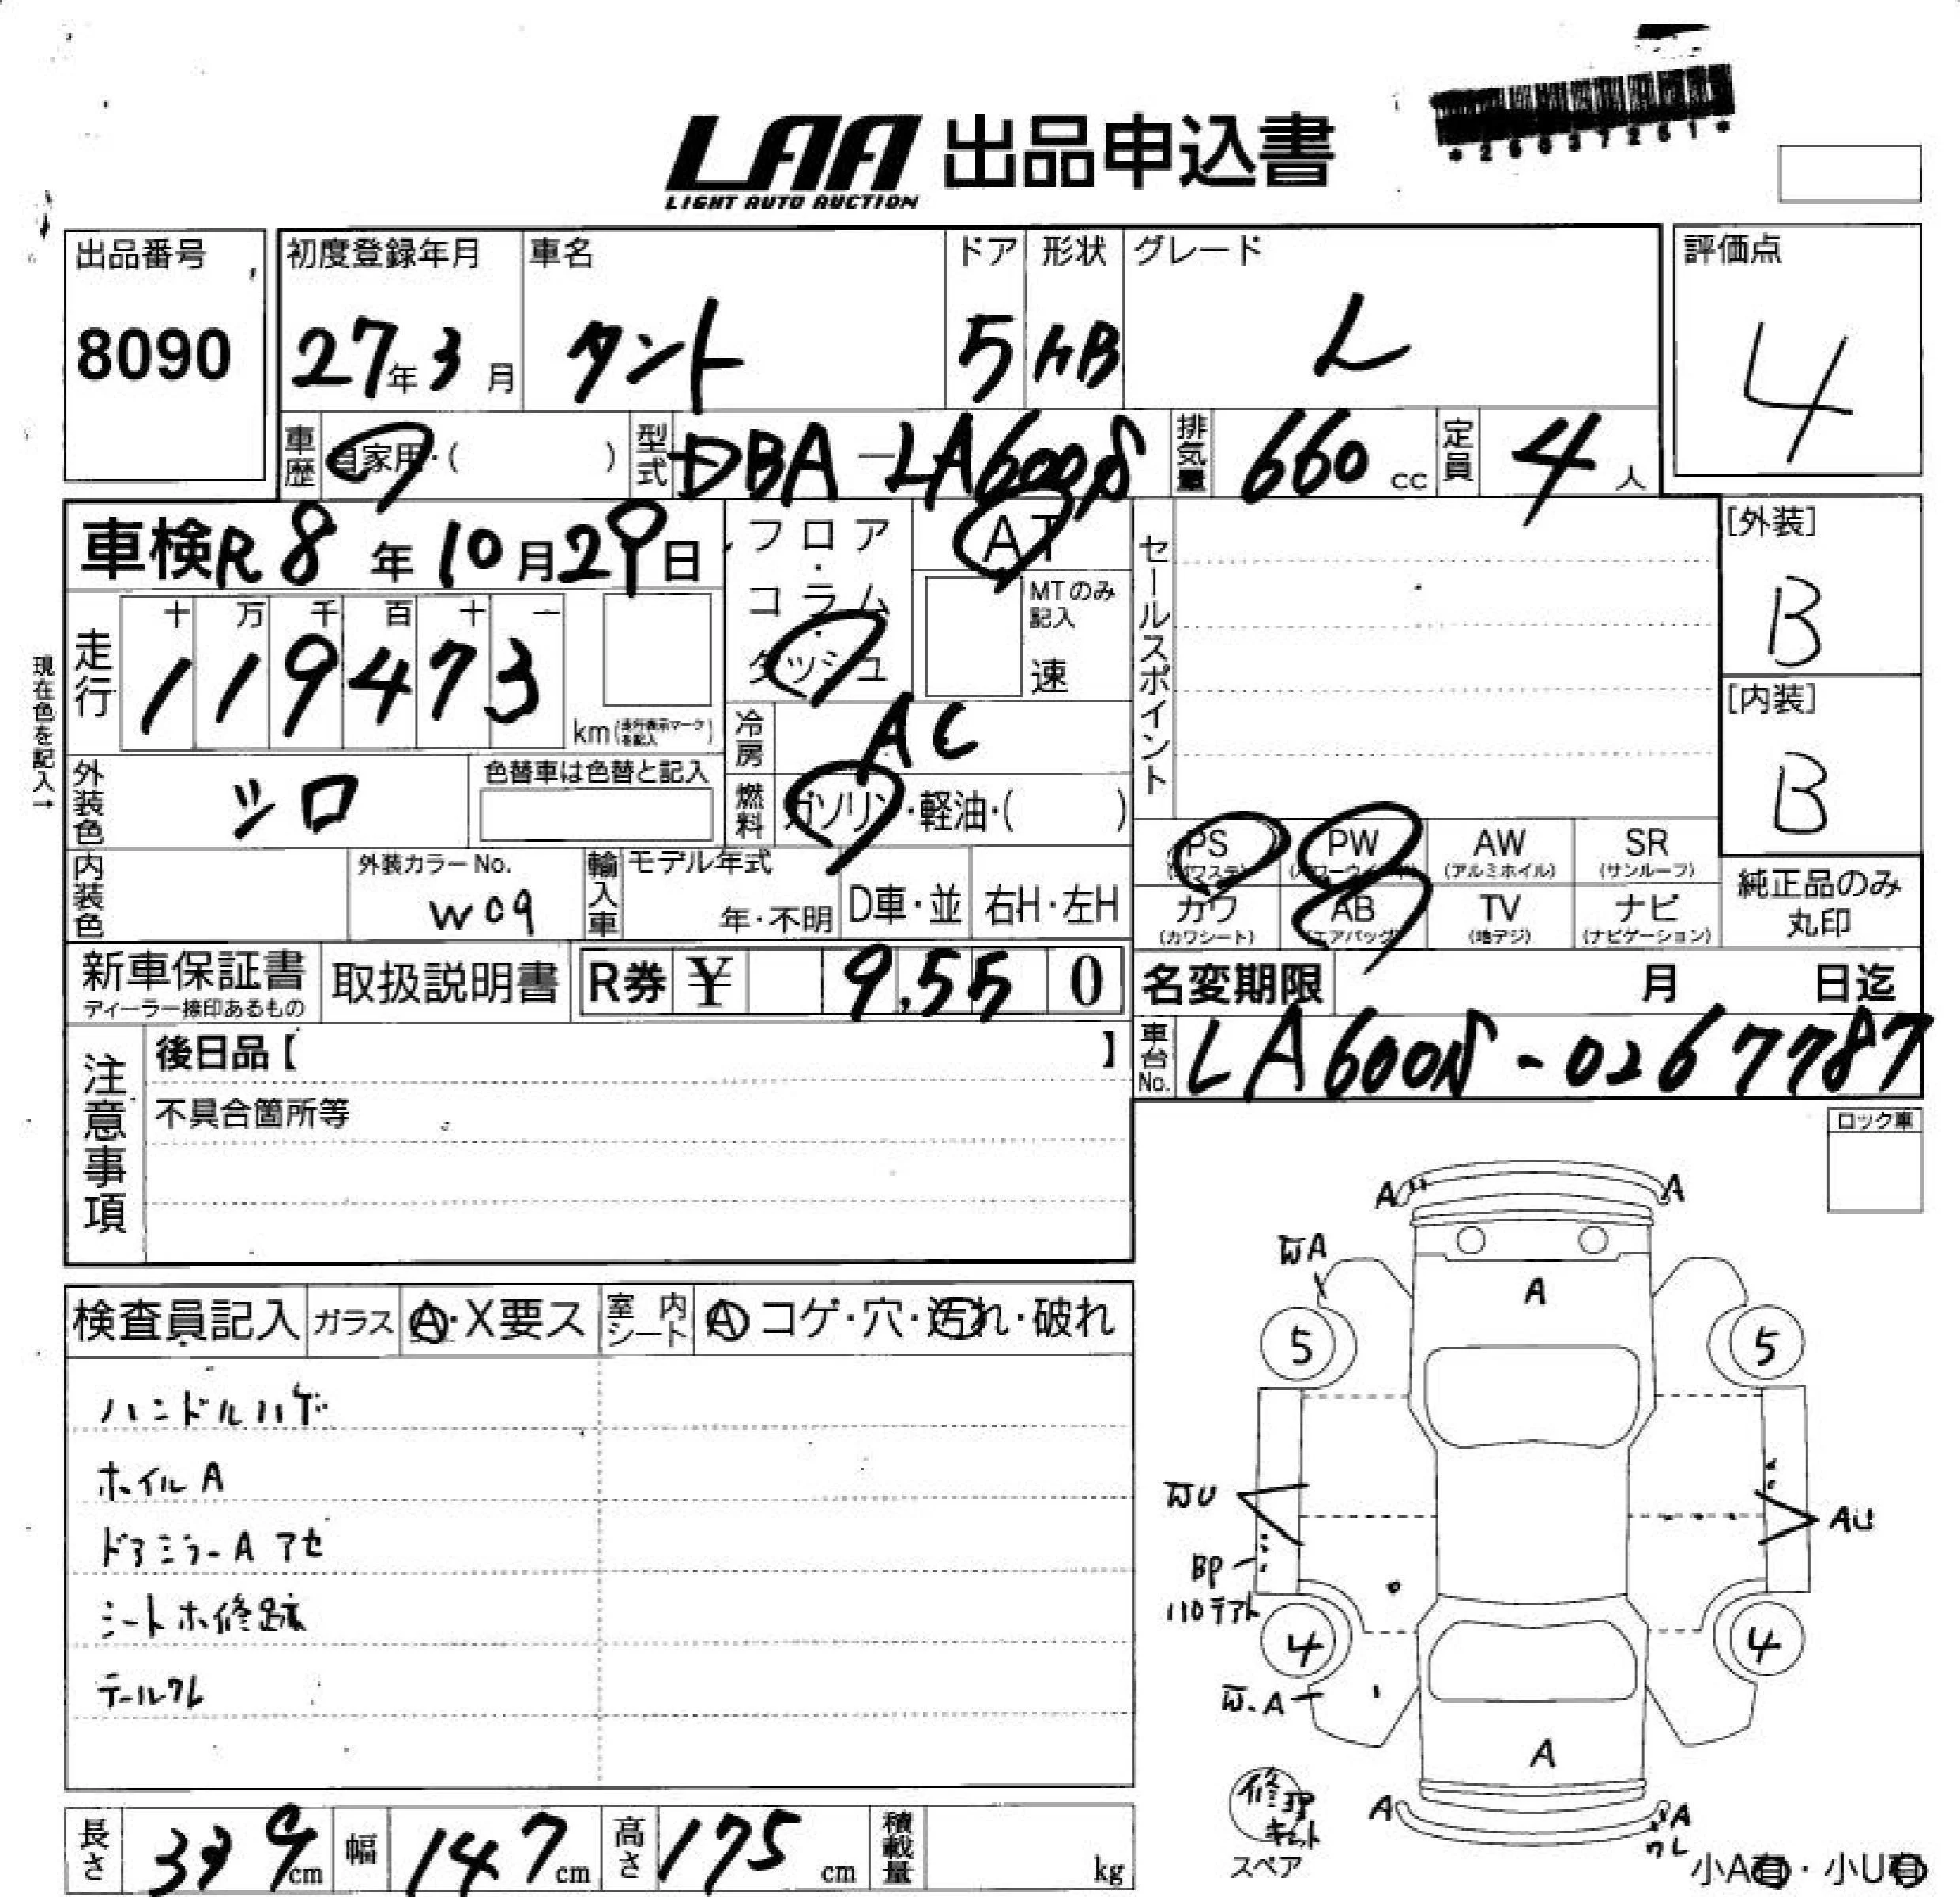 LAA 出品申込書
LIGHT AUTO AUCTION
出品番号
8090
初度登録年月
27年3月
車名
タント
ドア
5
形状
HB
グレード
L
評価点
4
車歴 自家用・( )
型式 DBA-LA600S
排気量 660 cc
定員 4 人
車検 R8年10月29日
フロア・コラム・ダッシュ
AT
MTのみ記入
速
セールスポイント
[外装]
B
[内装]
B
現在色を記入→
走行
十 万 千 百 十 一
1 1 9 4 7 3
km (走行表示マークを記入)
冷房 AC
外装色 シロ
色替車は色替と記入
燃料 ガソリン・軽油・( )
PS (パワステ)
PW (パワーウインドウ)
AW (アルミホイル)
SR (サンルーフ)
カワ (カワシート)
AB (エアバッグ)
TV (地デジ)
ナビ (ナビゲーション)
純正品のみ丸印
内装色
外装カラーNo.
W09
輸入車
モデル年式
年・不明
D車・並
右H・左H
新車保証書
ディーラー捺印あるもの
取扱説明書
R券 ¥ 9,550
名変期限 月 日迄
車台No. LA600S-0267787
注意事項
後日品【 】
不具合箇所等
ロック車
検査員記入
ガラス A・X要ス
室内シート A コゲ・穴・汚れ・破れ
ハンドルハゲ
ホイルA
ドアミラーA アセ
シートホ修跡
テールワレ
A A
WA
A
5 5
WU
AU
BP
4 4
W.A
A
A A
ワレ
修理キット
スペア
小A有・小U有
長さ 339cm
幅 147cm
高さ 175cm
積載量 kg